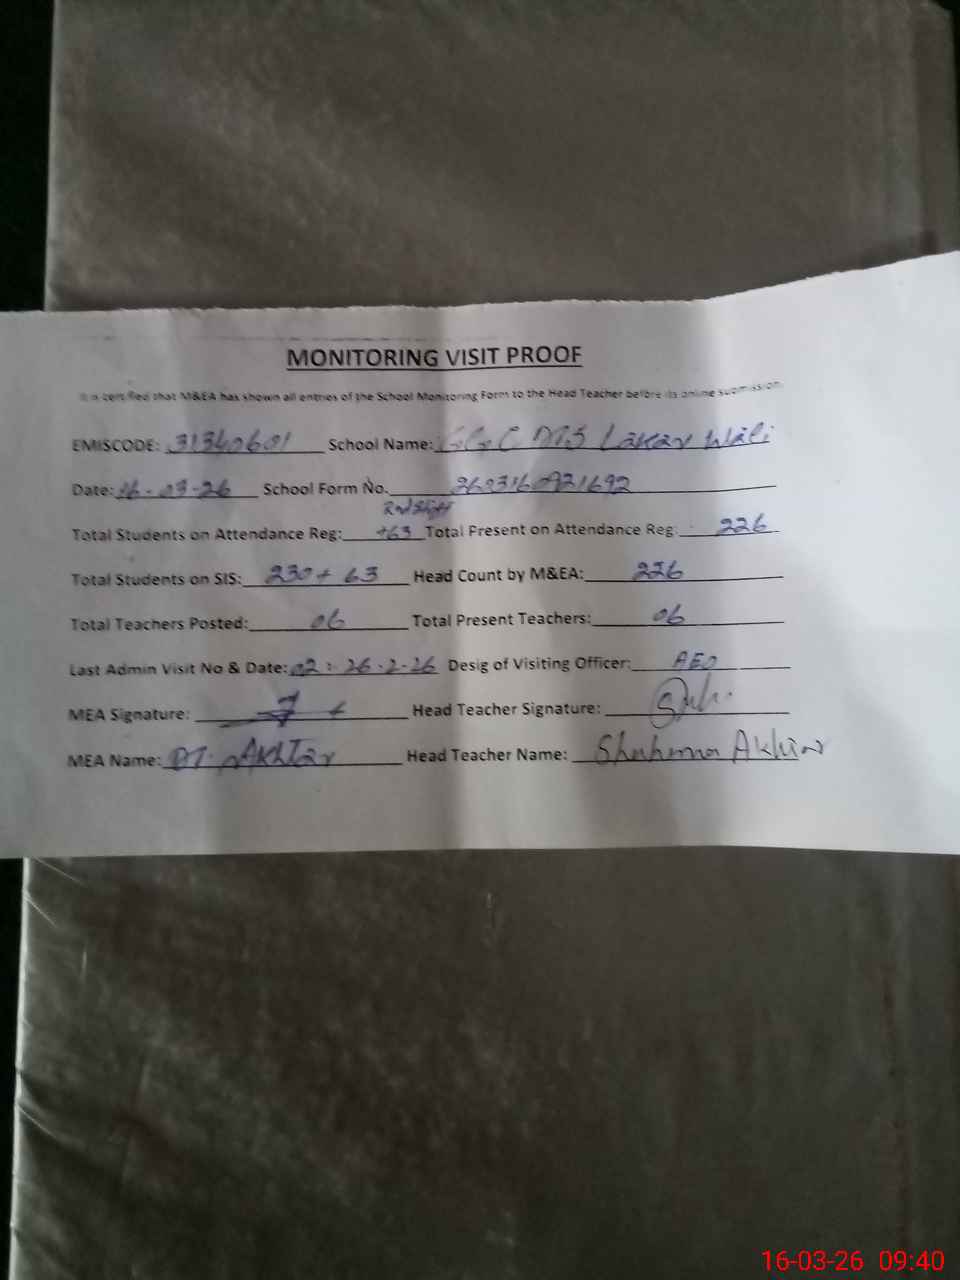 MONITORING VISIT PROOF
It is certified that M&EA has shown all entries of the School Monitoring Form to the Head Teacher before its online submission.
EMISCODE: 31340601 School Name: GGC MS Lakar Wali
Date: 16-03-26 School Form No. 2603160921692
Total Students on Attendance Reg: +63 Total Present on Attendance Reg: 226
Total Students on SIS: 230+63 Head Count by M&EA: 226
Total Teachers Posted: 06 Total Present Teachers: 06
Last Admin Visit No & Date: 02: 26-2-26 Desig of Visiting Officer: AEO
MEA Signature: Head Teacher Signature:
MEA Name: Akhtar Head Teacher Name: Akhtar
16-03-26 09:40